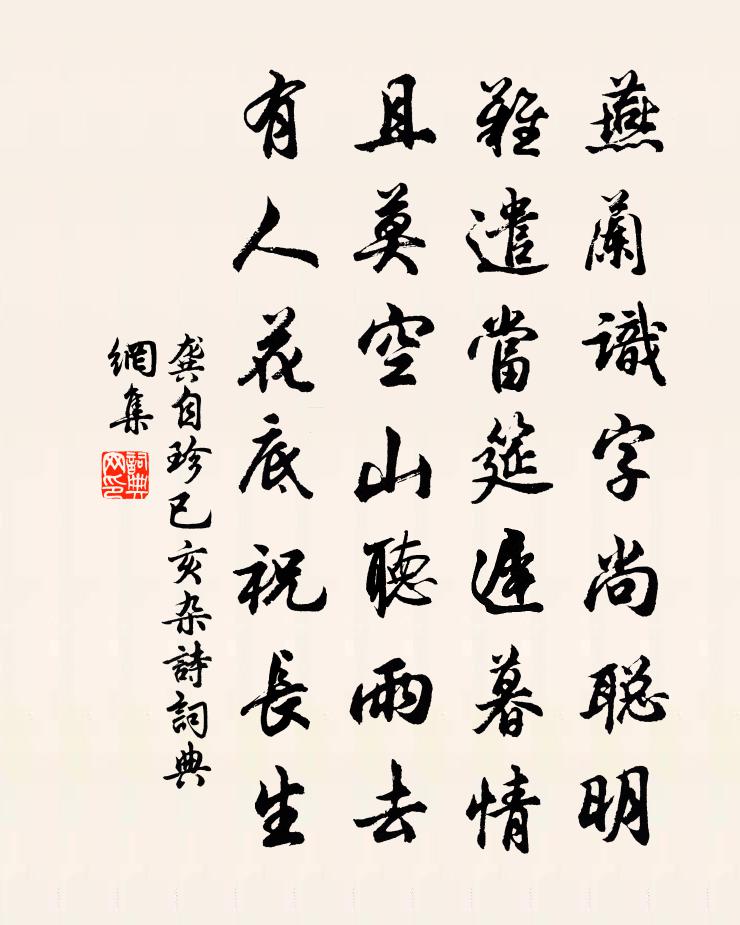 燕蘭識字尚聰明
難遣當筵遲暮情
且莫空山聽雨去
有人花底祝長生
龔自珍己亥杂詩詞典
網集
詞典
网印